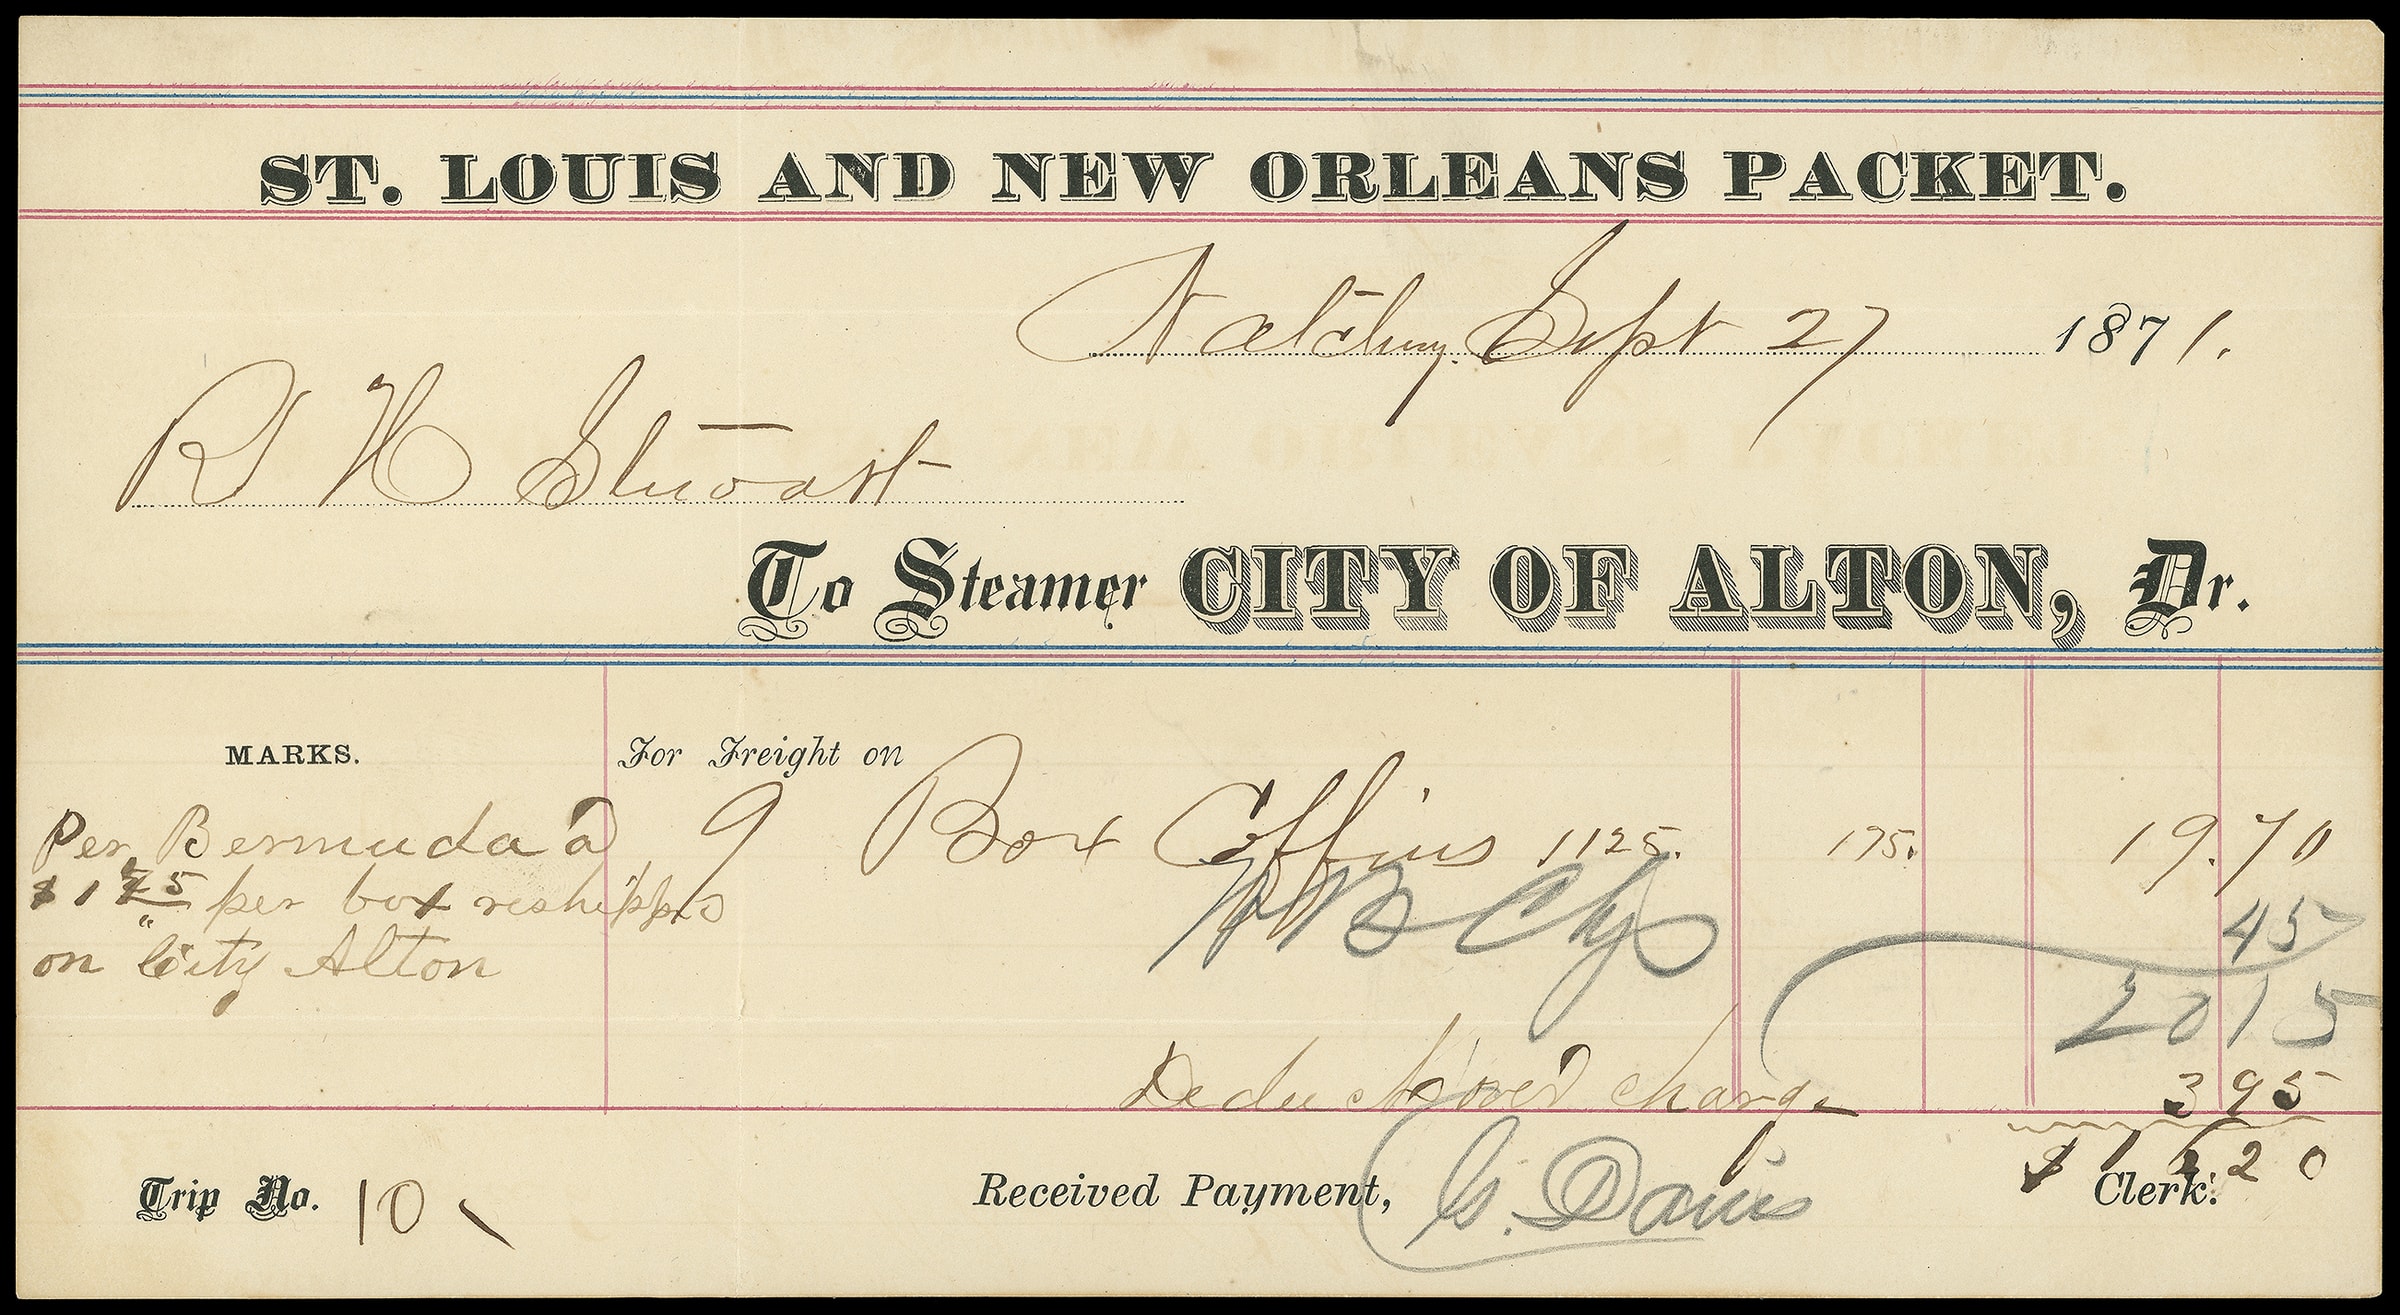 ST. LOUIS AND NEW ORLEANS PACKET.
Natchez, Sept 27 1871.
R H Stewart
To Steamer CITY OF ALTON, Dr.
MARKS. For Freight on
Per Bermuda a 9 Box Coffins 1125. 175. 19.70
$1 75 per box reshippd 45
on "City Alton 2015
Deduct over charge 395
$ 1 20
Trip No. 10 Received Payment, G. Davis Clerk.